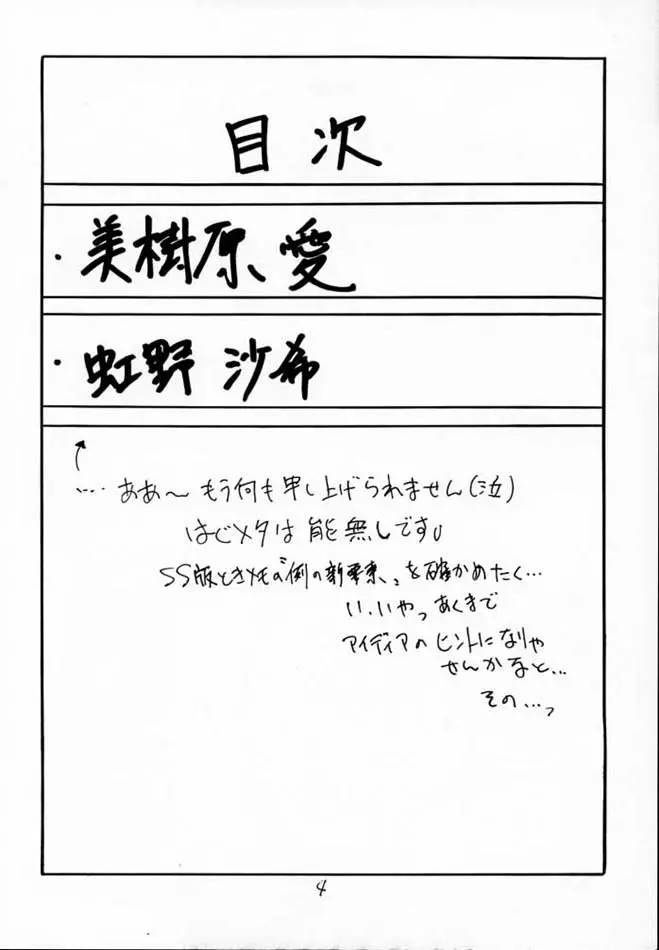 目次
・美樹原 愛
・虹野 沙希
…. ああ〜もう何も申し上げられません(泣)
はじメタは能無しです。
SS版ときメモの"例の新要素"を確かめたく…
い、いやっ あくまで
アイディアのヒントになりゃ
せんかなと…
その…っ
4